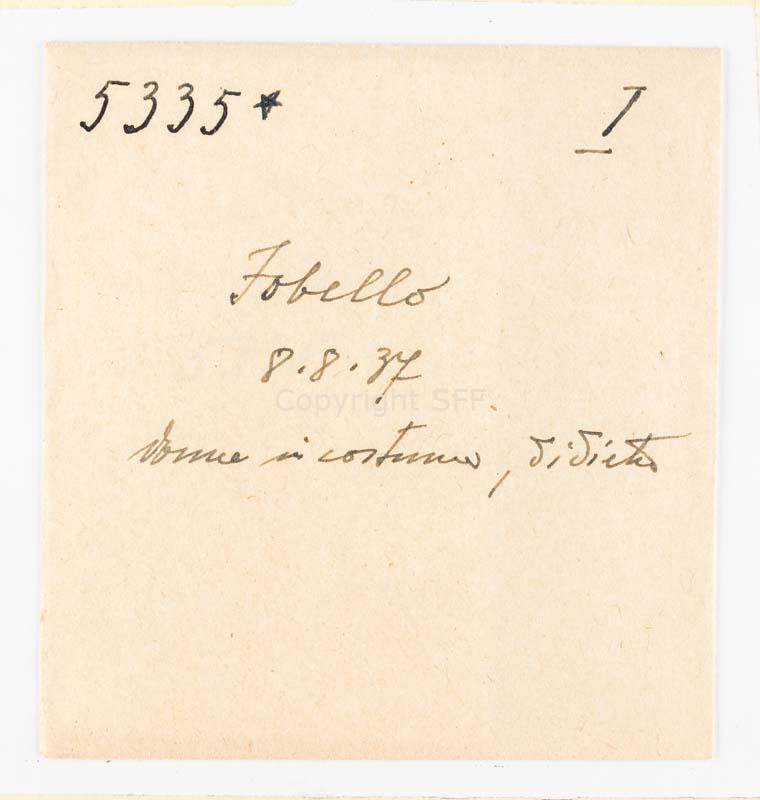 5335* I
Fobello
8.8.37
Copyright SFF
donne in costume, di dietro